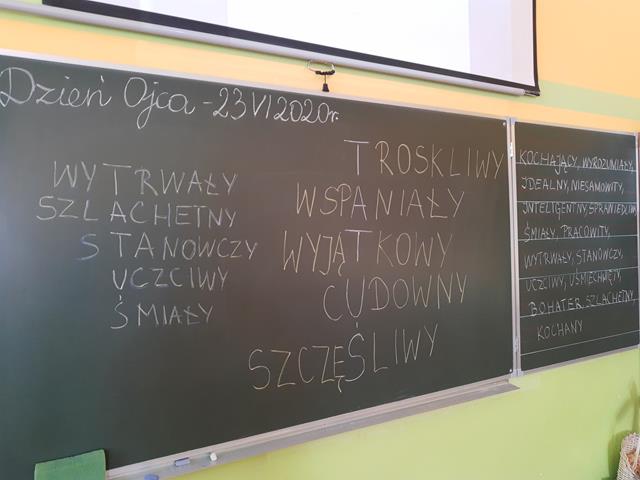 Dzień Ojca - 23 VI 2020r.
WYTRWAŁY
SZLACHETNY
STANOWCZY
UCZCIWY
ŚMIAŁY
TROSKLIWY
WSPANIAŁY
WYJĄTKOWY
CUDOWNY
SZCZĘŚLIWY
KOCHAJĄCY, WYROZUMIAŁY,
IDEALNY, NIESAMOWITY,
INTELIGENTNY, SPRAWIEDLIWY
ŚMIAŁY, PRACOWITY,
WYTRWAŁY, STANOWCZY,
UCZCIWY, UŚMIECHNIĘTY,
BOHATER, SZLACHETNY,
KOCHANY